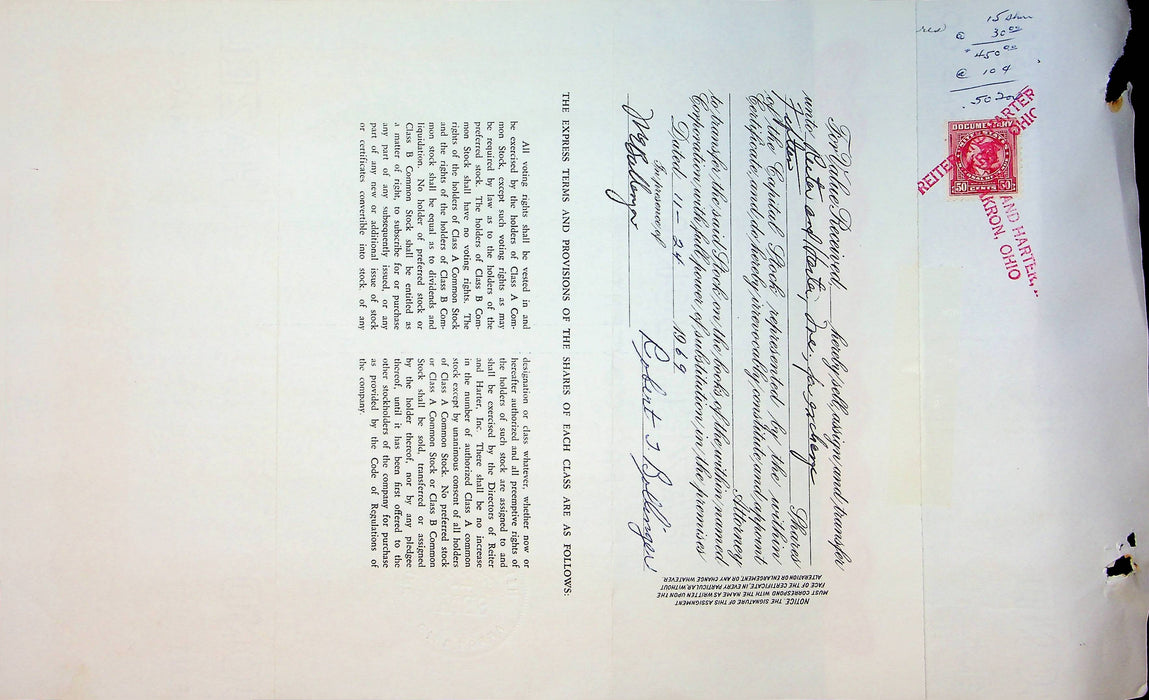 15 Shares
@ 30.00
450.00
@ 10¢
.50
DOCUMENTARY
50 CENTS 50
REITER AND HARTER,
AKRON, OHIO
HARTER
OHIO
For Value Received, hereby sell, assign and transfer
unto Reiter and Harter, Inc. for exchange
Fifteen Shares
of the Capital Stock represented by the within
Certificate, and do hereby irrevocably constitute and appoint
Attorney
to transfer the said Stock on the books of the within named
Corporation with full power of substitution in the premises
Dated 11-24 1969
In presence of
Robert F. Bollinger
NOTICE. THE SIGNATURE OF THIS ASSIGNMENT
MUST CORRESPOND WITH THE NAME AS WRITTEN UPON THE
FACE OF THE CERTIFICATE, IN EVERY PARTICULAR, WITHOUT
ALTERATION OR ENLARGEMENT, OR ANY CHANGE WHATEVER.
THE EXPRESS TERMS AND PROVISIONS OF THE SHARES OF EACH CLASS ARE AS FOLLOWS:
All voting rights shall be vested in and
be exercised by the holders of Class A Com-
mon Stock, except such voting rights as may
be required by law as to the holders of the
preferred stock. The holders of Class B Com-
mon Stock shall have no voting rights. The
rights of the holders of Class A Common Stock
and the rights of the holders of Class B Com-
mon stock shall be equal as to dividends and
liquidation. No holder of preferred stock or
Class B Common Stock shall be entitled as
a matter of right, to subscribe for or purchase
any part of any subsequently issued, or any
part of any new or additional issue of stock
or certificates convertible into stock, of any
designation or class whatever, whether now or
hereafter authorized and all preemptive rights of
the holders of such stock are assigned to and
shall be exercised by the Directors of Reiter
and Harter, Inc. There shall be no increase
in the number of authorized Class A common
stock except by unanimous consent of all holders
of Class A Common Stock. No preferred stock
or Class A Common Stock or Class B Common
Stock shall be sold, transferred or assigned
by the holder thereof, nor by any pledgee
thereof, until it has been first offered to the
other stockholders of the company for purchase
as provided by the Code of Regulations of
the company.